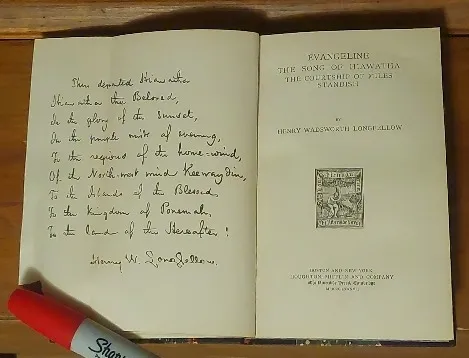 Thus departed Hiawatha
Hiawatha the Beloved,
In the glory of the sunset,
In the purple mists of evening,
To the regions of the home-wind,
Of the North-west wind Keewaydin,
To the Islands of the Blessed
To the kingdom of Ponemah,
To the land of the Hereafter!
Henry W. Longfellow.
EVANGELINE
THE SONG OF HIAWATHA
THE COURTSHIP OF MILES
STANDISH
BY
HENRY WADSWORTH LONGFELLOW
BOSTON AND NEW YORK
HOUGHTON MIFFLIN AND COMPANY
The Riverside Press, Cambridge
Sharpie